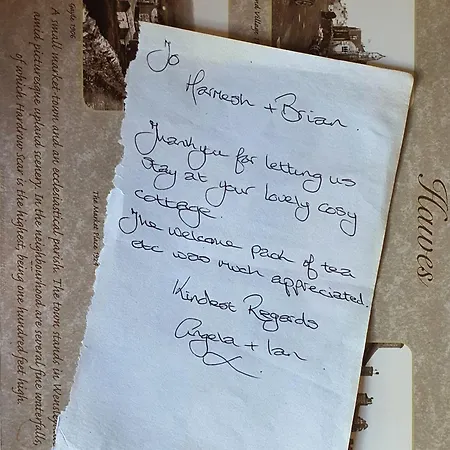 To
Harmesh + Brian.
Thankyou for letting us
stay at your lovely cosy
cottage.
The welcome pack of tea
etc was much appreciated.
Kindest Regards
Angela + Ian
x
Hawes
A small market town and an ecclesiastical parish. The town stands in
amid picturesque upland scenery. In the neighbourhood are several fine waterfalls,
of which Hardrow Scar is the highest, being one hundred feet high.
The Market Place
Gayle 1906
Village